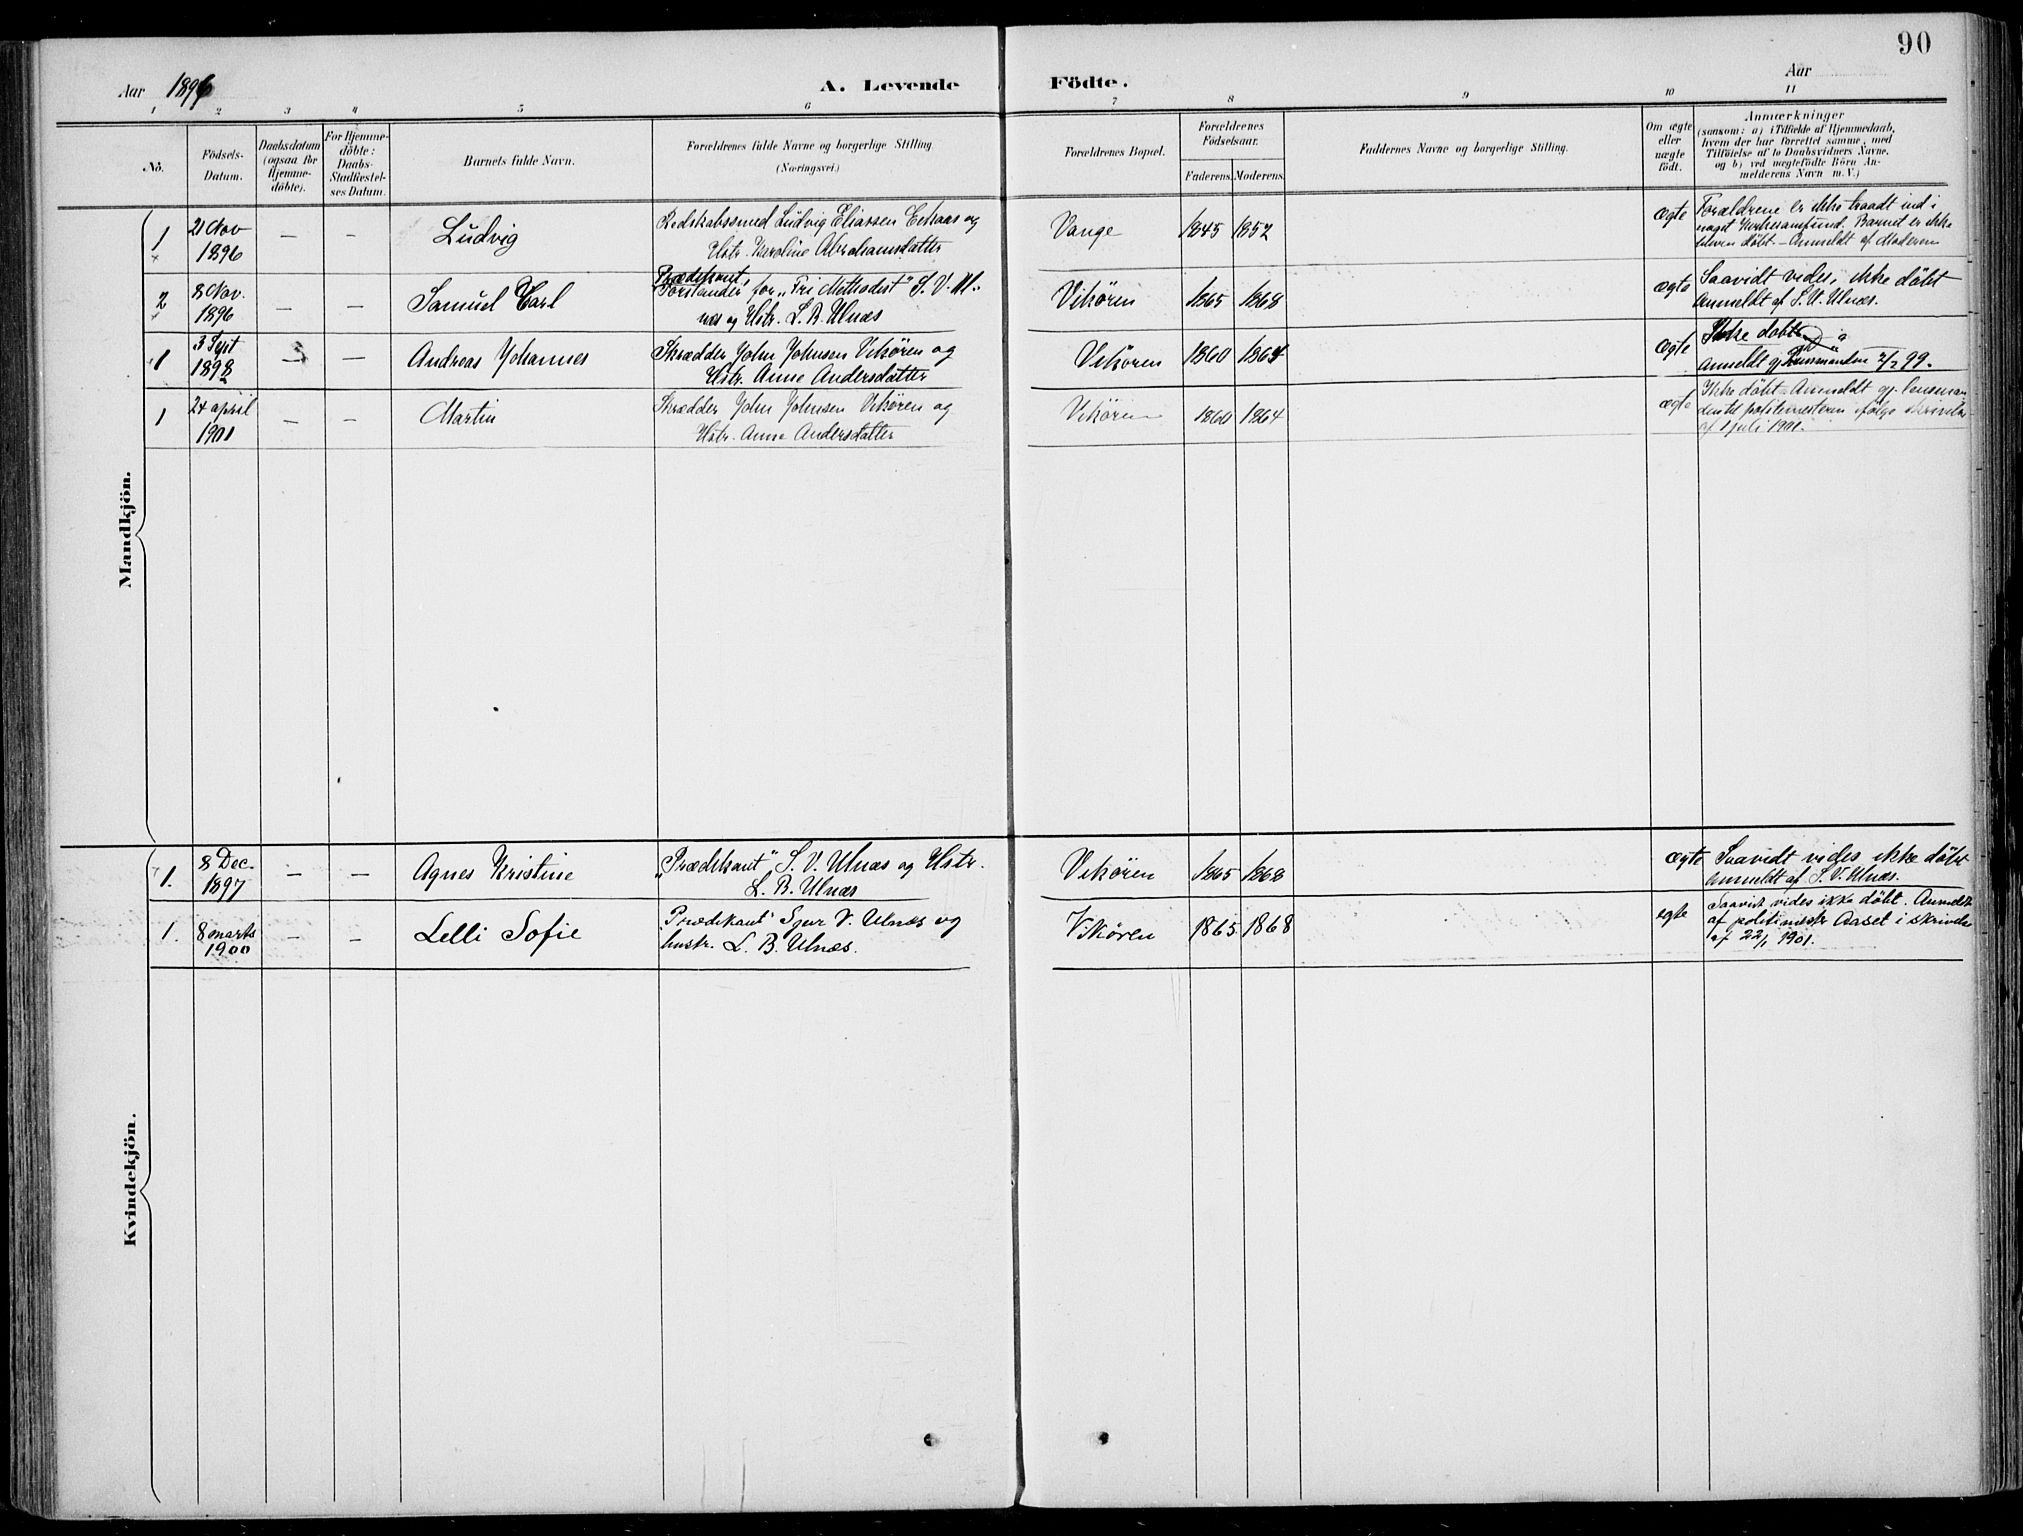 90
Aar 1896 A. Levende Födte. Aar
1 2 3 4 5 6 7 8 9 10 11
No.
Födsels-
Datum.
Daabsdatum
(ogsaa for
Hjemme-
döbte).
For Hjemme-
döbte:
Daabs-
Stadfæstel-
ses Datum.
Barnets fulde Navn.
Forældrenes fulde Navne og borgerlige Stilling
(Næringsvei.)
Forældrenes Bopæl.
Forældrenes
Födselsaar.
Faderens. Moderens.
Faddernes Navne og borgerlige Stilling.
Om ægte
eller
uægte
födt.
Anmærkninger
(saasom: a) i Tilfælde af Hjemmedaab,
hvem der har forrettet samme, med
Tilföielse af to Daabsvidners Navne,
og b) ved uægtefödte Börn An-
melderens Navn m. V.)
Mandkjön.
1 21 Nov
1896
— —
Ludvig
Redskabssmed Ludvig Eliassen og
Hstr. Karoline Abrahamsdatter
Vange
1845 1852
ægte
Forældrene er ikke traadt ind i
noget Kirkesamfund. Barnet er ikke
bleven döbt. – Anmeldt af Moderen
2 8 Nov.
1896
— —
Samuel Carl
Prædikant,
Forstander for "Fri Methodist" S. V. Ul-
næs og Hstr. L. B. Ulnæs
Vikören
1865 1868
ægte
Saavidt vides, ikke döbt
Anmeldt af S. V. Ulnæs.
1 3 Sept
1898
— —
Andreas Johannes
Skrædder John Johnsen Vikören og
Hstr. Anne Andersdatter
Vikören
1860 1864
ægte
Ikke döbt
Anmeldt gj. Lensmanden 2/2 99.
1 24 april
1901
— —
Martin
Skrædder John Johnsen Vikören og
Hstr. Anne Andersdatter
Vikören
1860 1864
ægte
Ikke döbt – Anmeldt gj. lensman
den til politimesteren ifölge skrivelse
af 1 juli 1901.
Kvindekjön.
1. 8 Dec.
1897
— —
Agnes Kristine
"Prædikant" S. V. Ulnæs og Hstr.
L. B. Ulnæs
Vikören
1865 1868
ægte
Saavidt vides ikke döbt
Anmeldt af S. V. Ulnæs.
1. 8 marts
1900
— —
Lelli Sofie
"Prædikant" Sjur V. Ulnæs og
hustr. L. B. Ulnæs.
Vikören
1865 1868
egte
Saavidt vides ikke döbt. Anmeldt
af politimestr Aaset i skrivelse
af 22/1 1901.